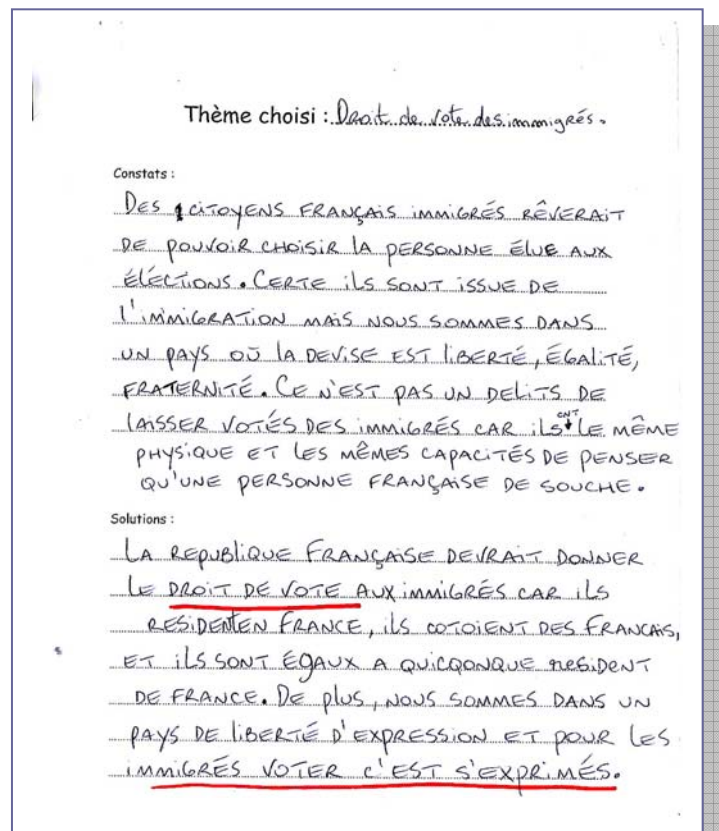 Thème choisi : Droit de vote des immigrés.
Constats :
DES CITOYENS FRANÇAIS IMMIGRÉS RÊVERAIT
DE POUVOIR CHOISIR LA PERSONNE ÉLUE AUX
ÉLÉCTIONS. CERTE ILS SONT ISSUE DE
L'IMMIGRATION MAIS NOUS SOMMES DANS
UN PAYS OÙ LA DEVISE EST LIBERTÉ, ÉGALITÉ,
FRATERNITÉ. CE N'EST PAS UN DELITS DE
LAISSER VOTÉS DES IMMIGRÉS CAR ILS ONT LE MÊME
PHYSIQUE ET LES MÊMES CAPACITÉS DE PENSER
QU'UNE PERSONNE FRANÇAISE DE SOUCHE.
Solutions :
LA REPUBLIQUE FRANÇAISE DEVRAIT DONNER
LE DROIT DE VOTE AUX IMMIGRÉS CAR ILS
RESIDENT EN FRANCE, ILS COTOIENT DES FRANCAIS,
ET ILS SONT ÉGAUX A QUICQONQUE RESIDENT
DE FRANCE. DE PLUS, NOUS SOMMES DANS UN
PAYS DE LIBERTÉ D'EXPRESSION ET POUR LES
IMMIGRÉS VOTER C'EST S'EXPRIMÉS.